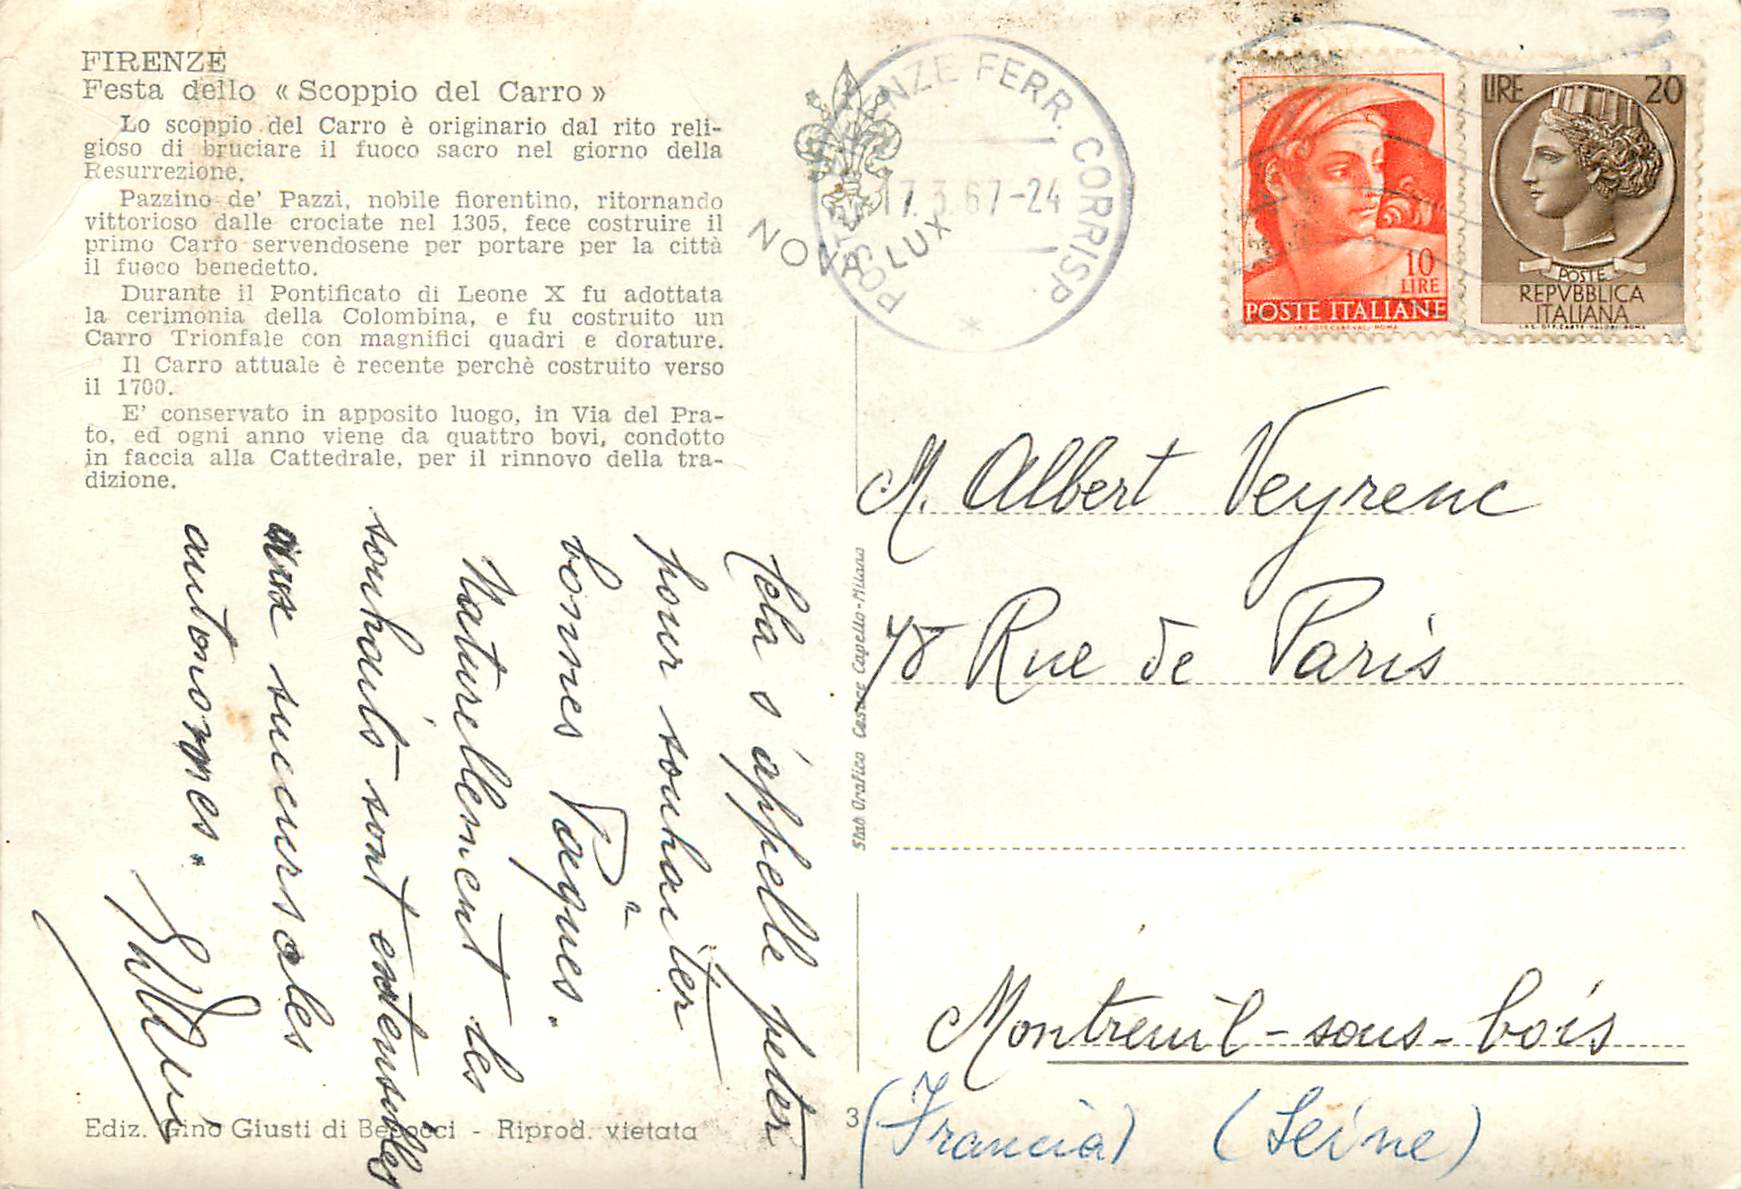 FIRENZE
Festa dello « Scoppio del Carro »
Lo scoppio del Carro è originario dal rito reli-
gioso di bruciare il fuoco sacro nel giorno della
Resurrezione.
Pazzino de' Pazzi, nobile fiorentino, ritornando
vittorioso dalle crociate nel 1305, fece costruire il
primo Carro servendosene per portare per la città
il fuoco benedetto.
Durante il Pontificato di Leone X fu adottata
la cerimonia della Colombina, e fu costruito un
Carro Trionfale con magnifici quadri e dorature.
Il Carro attuale è recente perchè costruito verso
il 1700.
E' conservato in apposito luogo, in Via del Pra-
to, ed ogni anno viene da quattro bovi, condotto
in faccia alla Cattedrale, per il rinnovo della tra-
dizione.
Cela s'appelle peter
pour souhaiter
bonnes Pâques.
Naturellement les
souhaits sont extensibles
aux succursales
autonomes.
Ediz. Gino Giusti di Becocci - Riprod. vietata
3
Stab. Grafico Cesare Capello-Milano
NOVA LUX
POSTE FERR. CORRISP.
17.3.67-24
10
LIRE
POSTE ITALIANE
I.P.S. OFF. CARTE-VAL. ROMA
LIRE 20
POSTE
REPVBBLICA
ITALIANA
I.P.S. OFF. CARTE-VALORI-ROMA
M. Albert Veyrenc
78 Rue de Paris
Montreuil-sous-bois
(Francia) (Seine)